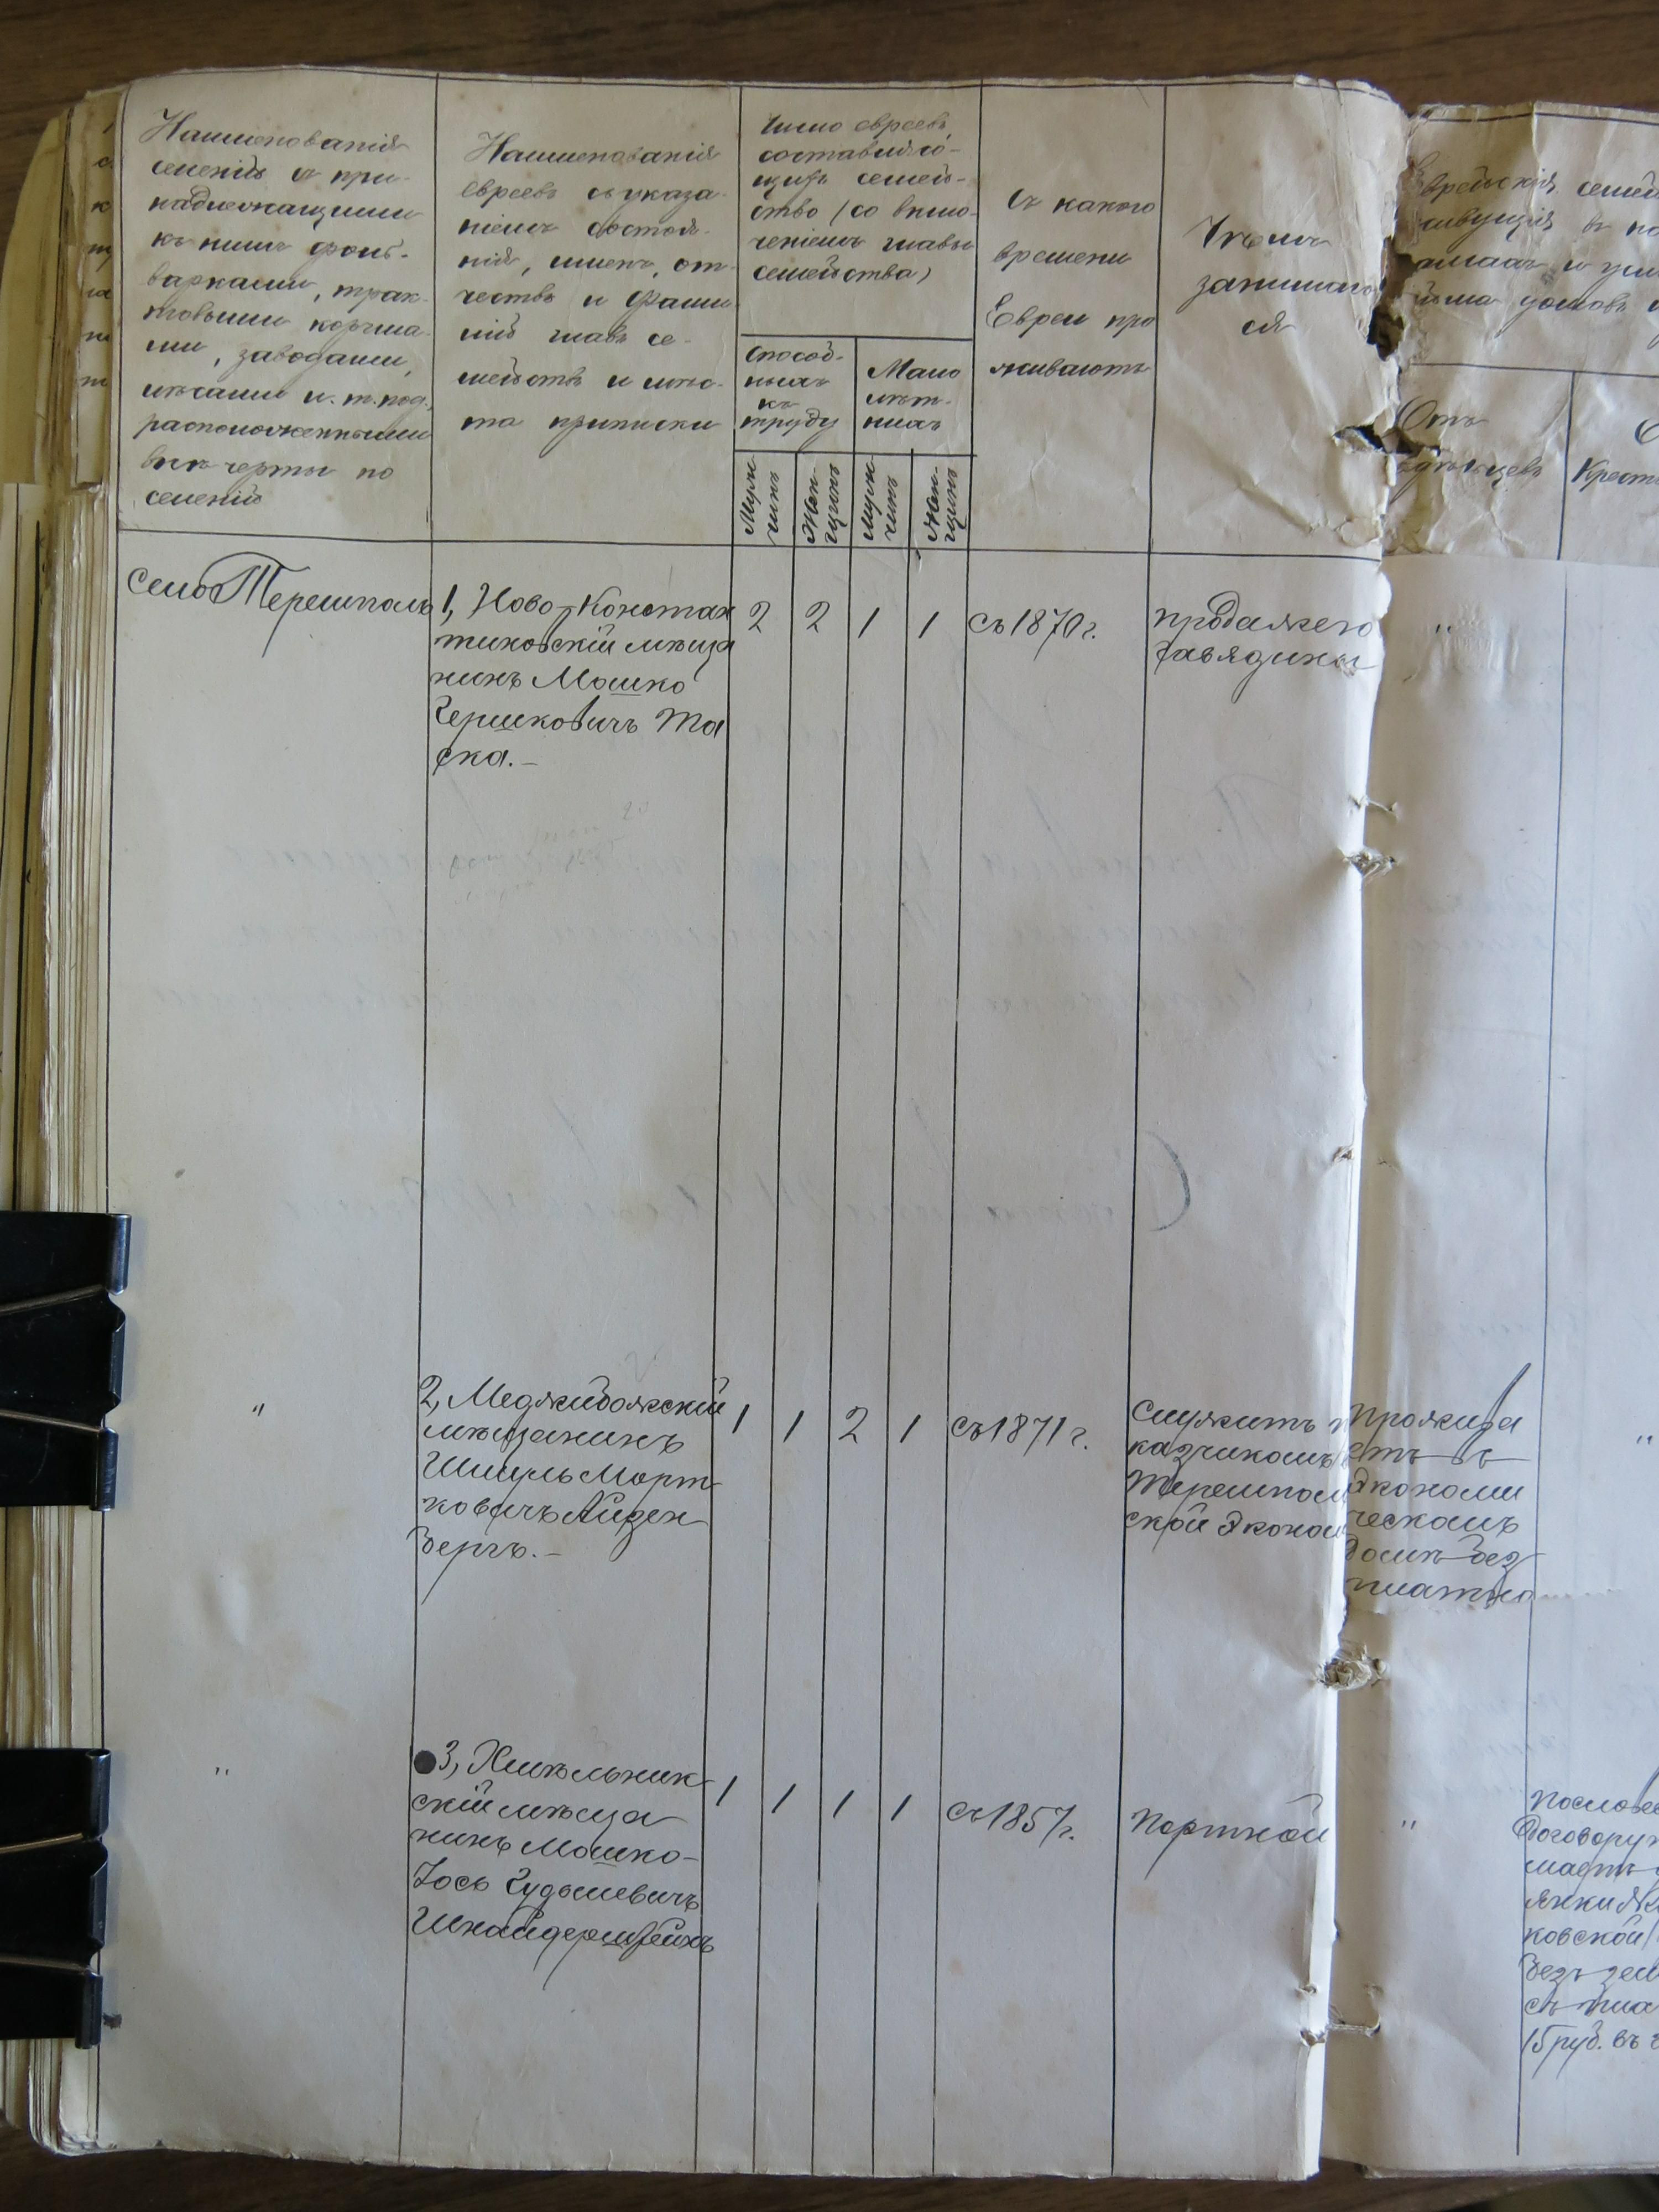 Наименованія
селеній и при-
надлежащими
къ нимъ фоль-
варками, трак-
товыми корчма-
ми, заводами,
лѣсами и. т. под.
расположенными
внѣ черты по
селеній
Наименованія
евреевъ съ указа-
ніемъ состоя-
нія, именъ, от-
чествъ и фами
лій главъ се-
мействъ и мѣс-
та приписки
Число евреевъ,
составляю-
щихъ семей-
ство (со вклю-
ченіемъ главы
семейства)
Способ-
ныхъ
къ
труду
Мало
лѣт-
нихъ
Муж
чинъ
Жен-
щинъ
Муж
чинъ
Жен-
щинъ
Съ какого
времени
Евреи про
живаютъ
Чѣмъ
занимаю
ся
Еврейскія семей
живущія въ по
Отъ
Крест
Село Терешполь
1, Ново-Констан
тиновскій мѣща
нинъ Мошко
Гершковичъ Та
ска.-
2 2 1 1
съ 1870 г.
продажею
гавядины
"
"
2, Меджибожскій
мѣщанинъ
Шмуль Морт-
ковичъ Айзен
бергъ.-
1 1 2 1
съ 1871 г.
Служитъ п
казчикомъ
Терешполь
ской Эконом
Прожива
етъ въ
Экономи
ческомъ
домѣ без
платно
"
"
3, Хмѣльник-
скій мѣща
нинъ Мошко-
Іось Гудымевичъ
1 1 1 1
съ 1857 г.
Портной
"
Пословес
договору
янки
ковской
безъ зем
съ пла
15 руб. въ г